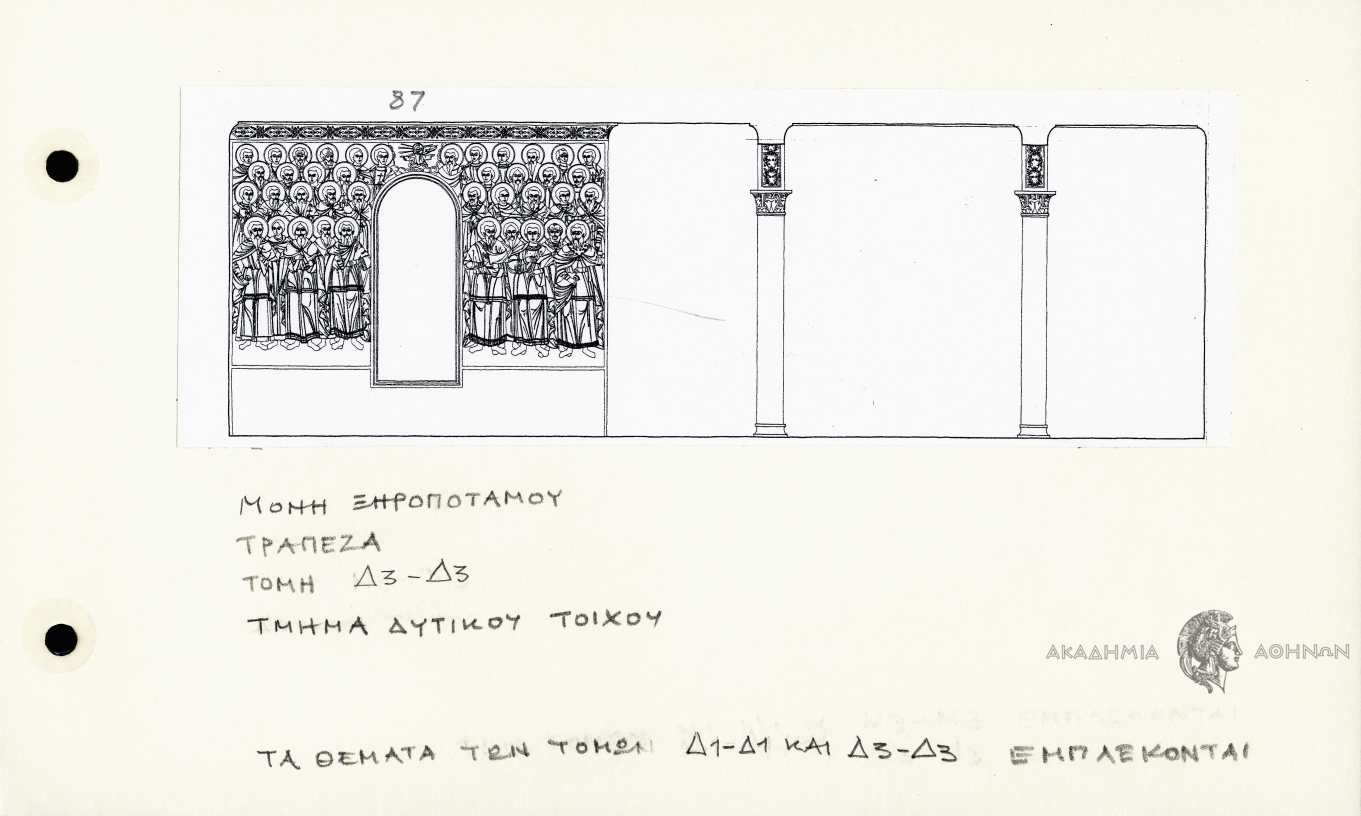 87
ΜΟΝΗ ΞΗΡΟΠΟΤΑΜΟΥ
ΤΡΑΠΕΖΑ
ΤΟΜΗ Δ3-Δ3
ΤΜΗΜΑ ΔΥΤΙΚΟΥ ΤΟΙΧΟΥ
ΑΚΑΔΗΜΙΑ ΑΘΗΝΩΝ
ΤΑ ΘΕΜΑΤΑ ΤΩΝ ΤΟΜΩΝ Δ1-Δ1 ΚΑΙ Δ3-Δ3 ΕΜΠΛΕΚΟΝΤΑΙ